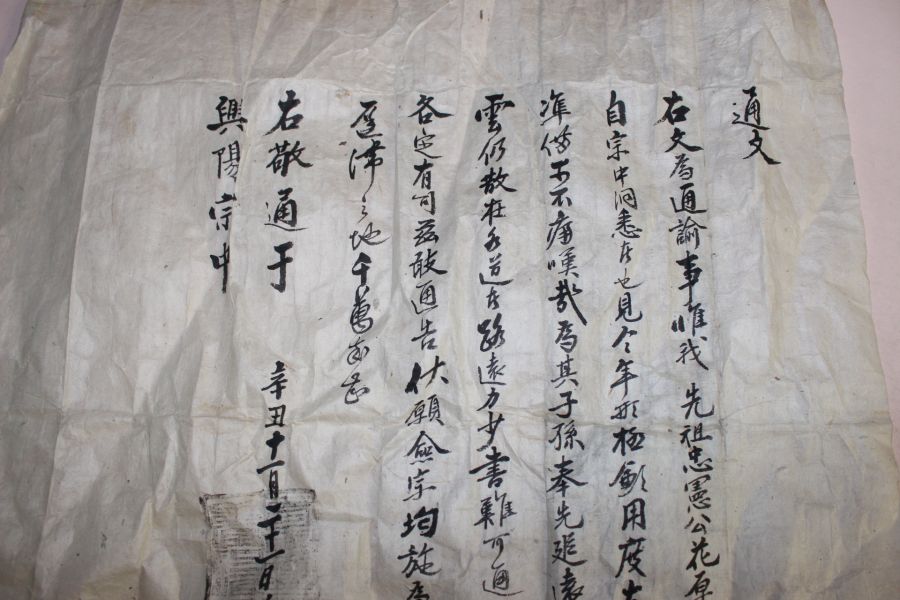 通文
右文爲通諭事惟我 先祖忠憲公花原
自宗中洞悉者也見今年形極歉用度
準備 不痛嘆哉爲其子孫奉先追遠
雲仍散在各道在路遠方少書難可通
各定有司玆敢通告伏願僉宗均施爲
匡濟之地千萬幸甚
右敬通于
辛丑十一月二十一日
興陽宗中